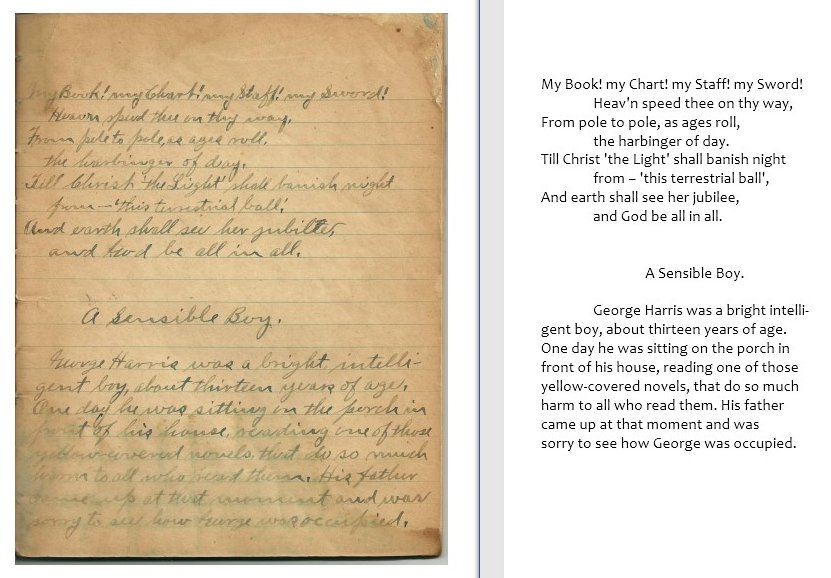 My Book! my Chart! my Staff! my Sword!
Heavn speed thee on thy way,
From pole to pole, as ages roll,
the harbinger of day.
Till Christ 'the Light' shall banish night
from – 'this terrestrial ball',
And earth shall see her jubilee,
and God be all in all.
A Sensible Boy.
George Harris was a bright, intelli-
gent boy, about thirteen years of age.
One day he was sitting on the porch in
front of his house, reading one of those
yellow-covered novels, that do so much
harm to all who read them. His father
came up at that moment and was
sorry to see how George was occupied.
My Book! my Chart! my Staff! my Sword!
Heav'n speed thee on thy way,
From pole to pole, as ages roll,
the harbinger of day.
Till Christ 'the Light' shall banish night
from – 'this terrestrial ball',
And earth shall see her jubilee,
and God be all in all.
A Sensible Boy.
George Harris was a bright intelli-
gent boy, about thirteen years of age.
One day he was sitting on the porch in
front of his house, reading one of those
yellow-covered novels, that do so much
harm to all who read them. His father
came up at that moment and was
sorry to see how George was occupied.